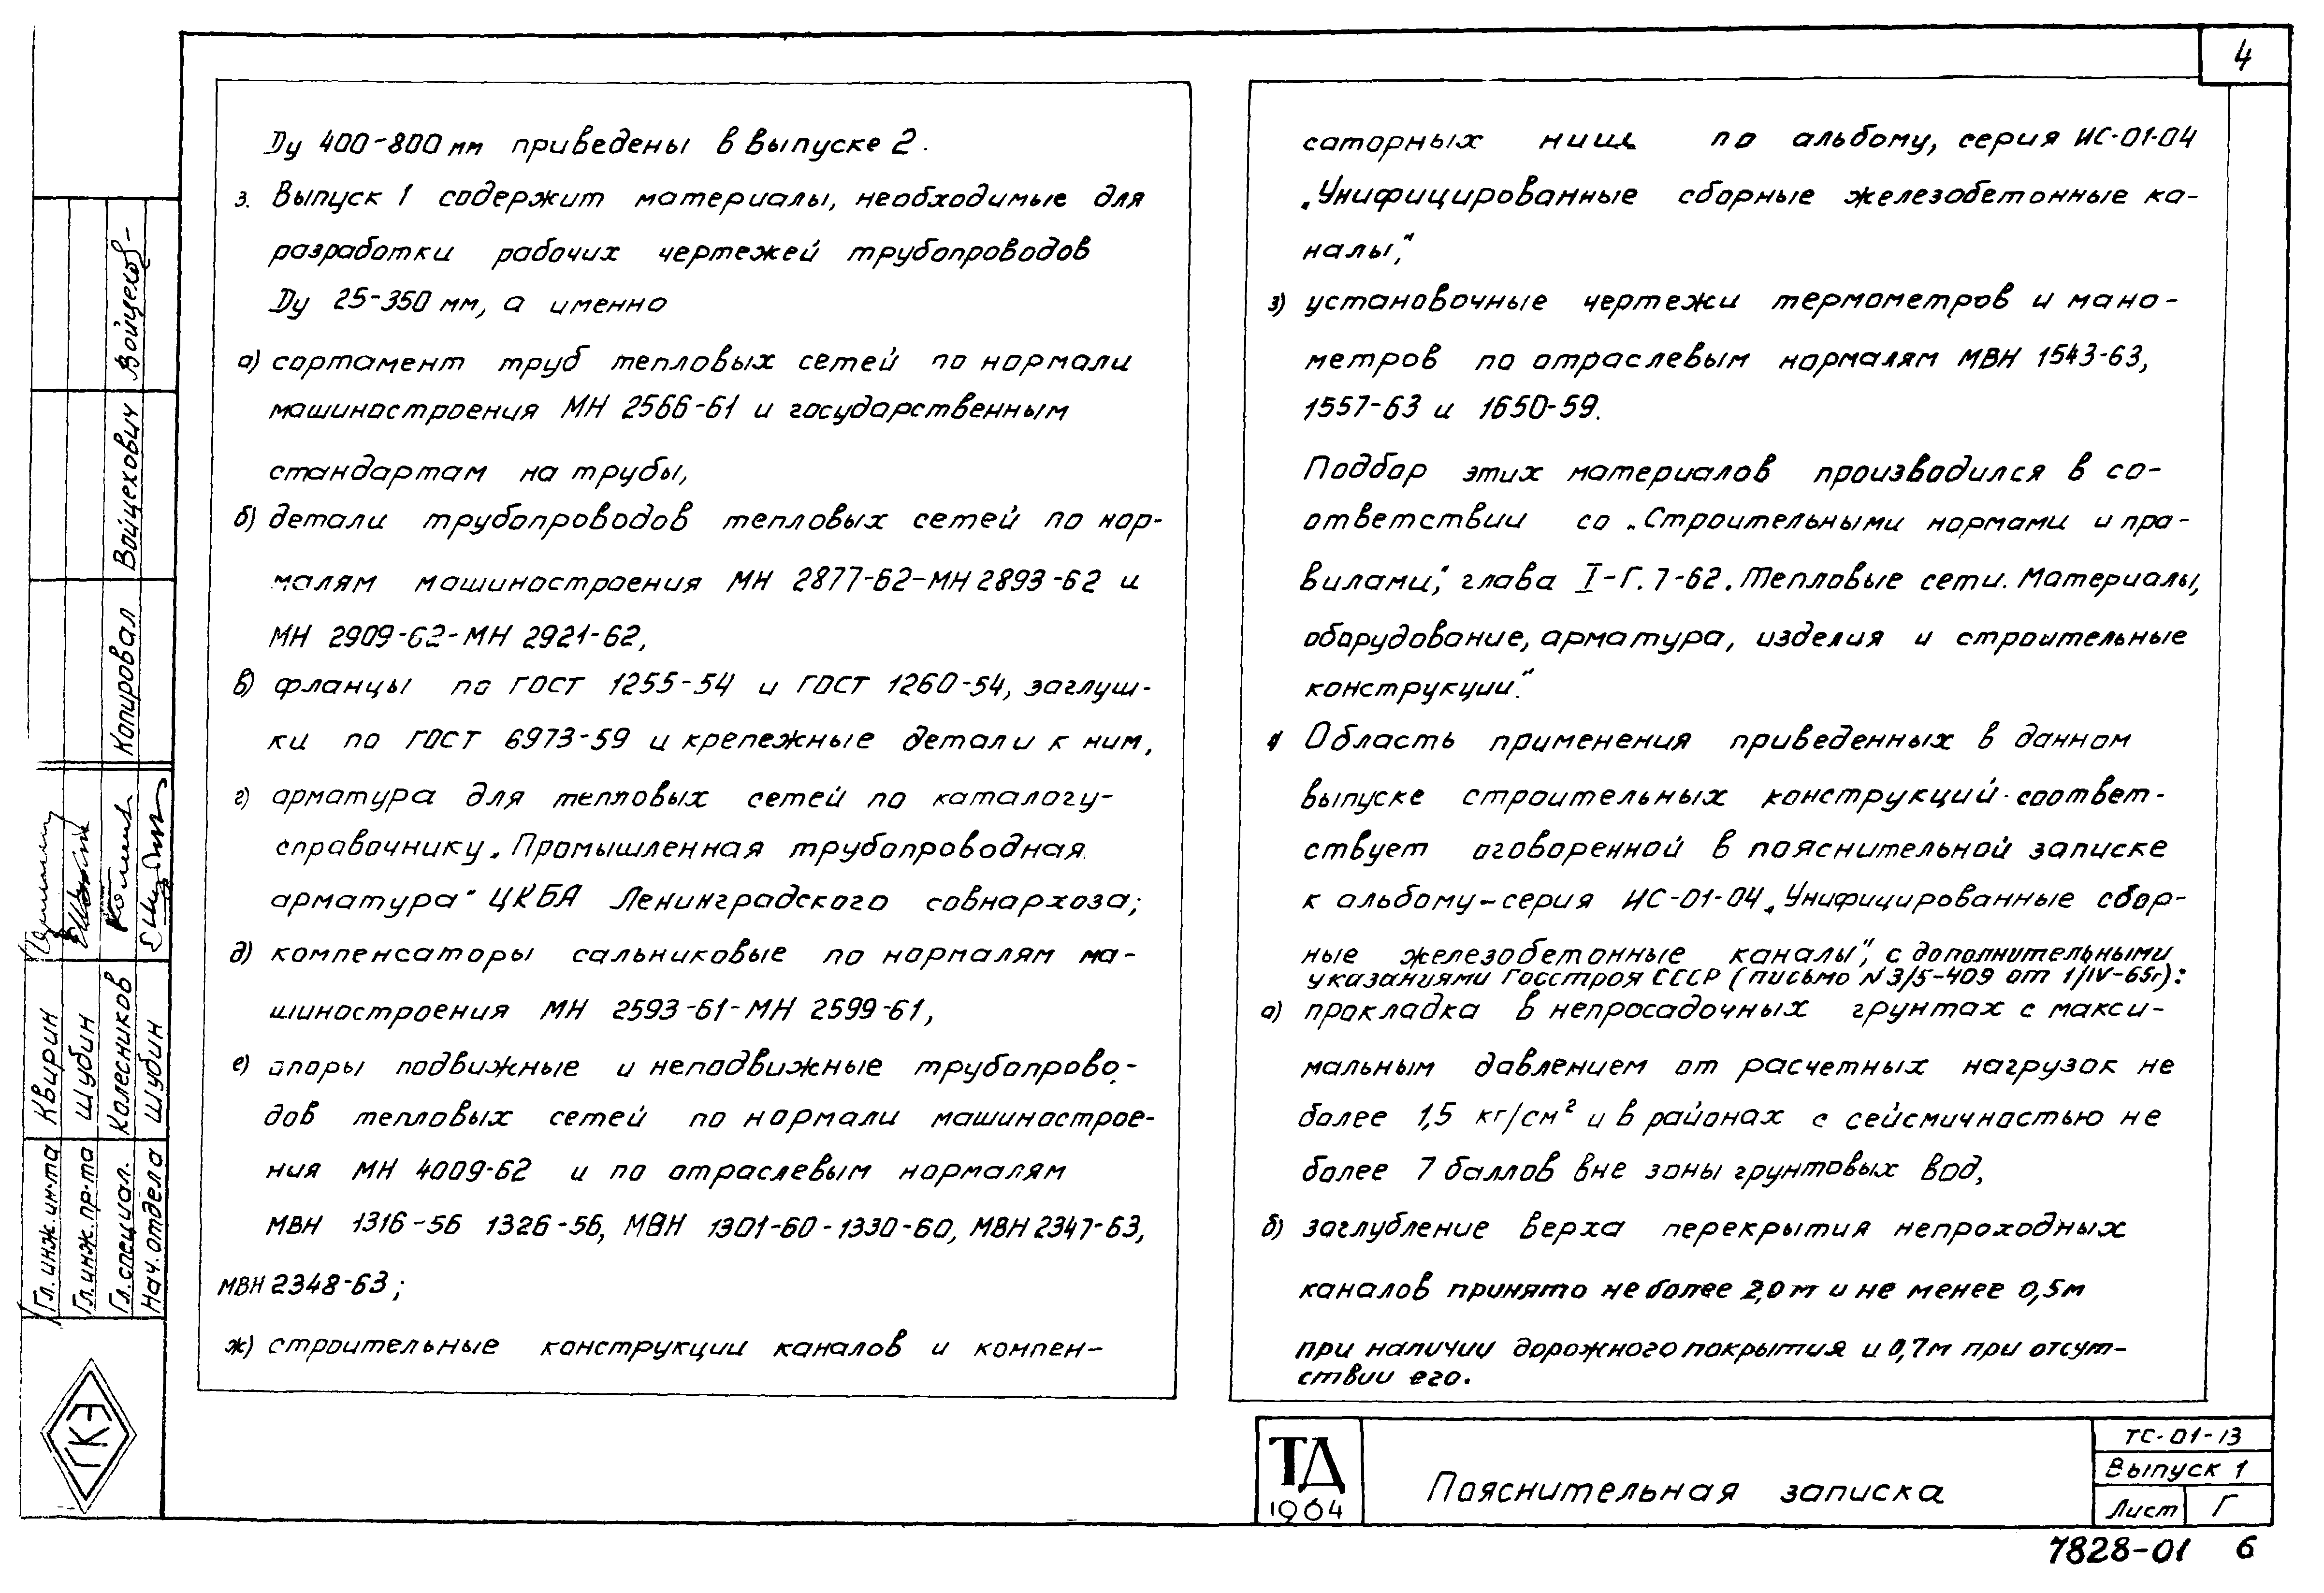 4
Ду 400-800 мм приведены в выпуске 2.
3. Выпуск 1 содержит материалы, необходимые для
разработки рабочих чертежей трубопроводов
Ду 25-350 мм, а именно
а) сортамент труб тепловых сетей по нормали
машиностроения МН 2566-61 и государственным
стандартам на трубы,
б) детали трубопроводов тепловых сетей по нор-
малям машиностроения МН 2877-62-МН 2893-62 и
МН 2909-62-МН 2921-62,
в) фланцы по ГОСТ 1255-54 и ГОСТ 1260-54, заглуш-
ки по ГОСТ 6973-59 и крепежные детали к ним,
г) арматура для тепловых сетей по каталогу-
справочнику „Промышленная трубопроводная
арматура" ЦКБА Ленинградского совнархоза;
д) компенсаторы сальниковые по нормалям ма-
шиностроения МН 2593-61-МН 2599-61,
е) опоры подвижные и неподвижные трубопрово-
дов тепловых сетей по нормали машинострое-
ния МН 4009-62 и по отраслевым нормалям
МВН 1316-56 1326-56, МВН 1301-60-1330-60, МВН 2347-63,
МВН 2348-63;
ж) строительные конструкции каналов и компен-
саторных ниш по альбому, серия ИС-01-04
„Унифицированные сборные железобетонные ка-
налы",
з) установочные чертежи термометров и мано-
метров по отраслевым нормалям МВН 1543-63,
1557-63 и 1650-59.
Подбор этих материалов производился в со-
ответствии со „Строительными нормами и пра-
вилами", глава I-Г. 7-62. „Тепловые сети. Материалы,
оборудование, арматура, изделия и строительные
конструкции".
Область применения приведенных в данном
выпуске строительных конструкций соответ-
ствует оговоренной в пояснительной записке
к альбому-серия ИС-01-04 „Унифицированные сбор-
ные железобетонные каналы", с дополнительными
указаниями Госстроя СССР (письмо N 3/5-409 от 1/IV-65г):
а) прокладка в непросадочных грунтах с макси-
мальным давлением от расчетных нагрузок не
более 1,5 кг/см² и в районах с сейсмичностью не
более 7 баллов вне зоны грунтовых вод,
б) заглубление верха перекрытия непроходных
каналов принято не более 2,0 м и не менее 0,5м
при наличии дорожного покрытия и 0,7м при отсут-
ствии его.
Гл. инж. ин-та Квирин
Гл. инж. пр-та Шубин
Гл. специал. Колесников Копировал Войцехович
Нач. отдела Шубин
ГКЭ
ТД
1964
Пояснительная записка
ТС-01-13
Выпуск 1
Лист Г
7828-01 6